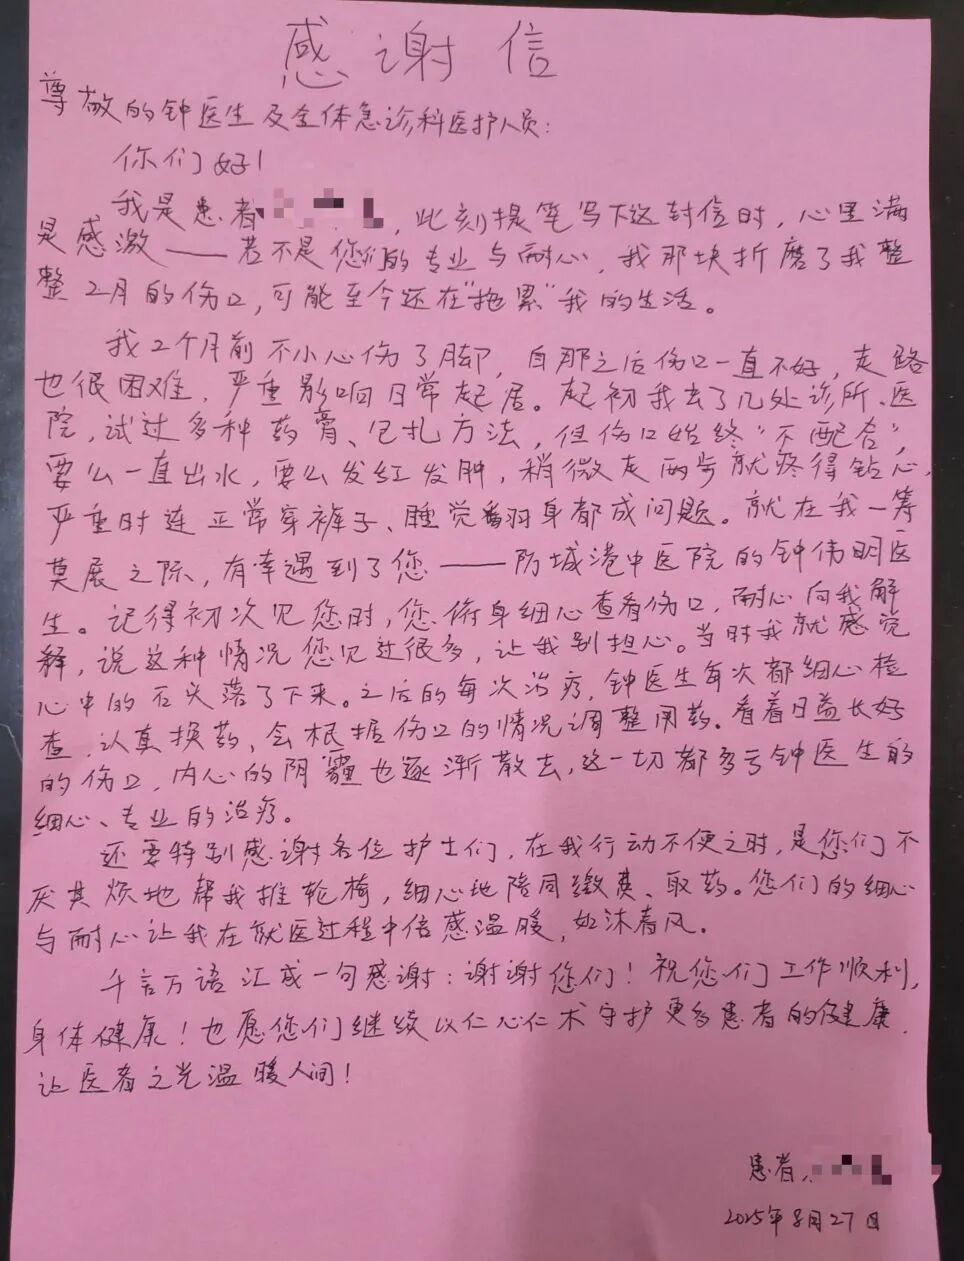 感谢信
尊敬的钟医生及全体急诊科医护人员：
你们好！
我是患者，此刻提笔写下这封信时，心里满
是感激——若不是您们的专业与耐心，我那块折磨了我整
整2月的伤口，可能至今还在“拖累”我的生活。
我2个月前不小心伤了脚，自那之后伤口一直不好，走路
也很困难，严重影响日常起居。起初我去了几处诊所、医
院，试过多种药膏、包扎方法，但伤口始终“不配合”，
要么一直出水，要么发红发肿，稍微走两步就疼得钻心，
严重时连正常穿裤子、睡觉翻身都成问题。就在我一筹
莫展之际，有幸遇到了您——防城港中医院的钟伟明医
生。记得初次见您时，您俯身细心查看伤口，耐心向我解
释，说这种情况您见过很多，让我别担心。当时我就感觉
心中的石头落了下来。之后的每次治疗，钟医生每次都细心检
查，认真换药，会根据伤口的情况调整用药。看着日益长好
的伤口，内心的阴霾也逐渐散去，这一切都多亏钟医生的
细心、专业的治疗。
还要特别感谢各位护士们，在我行动不便之时，是您们不
厌其烦地帮我推轮椅，细心地陪同缴费、取药。您们的细心
与耐心让我在就医过程中倍感温暖，如沐春风。
千言万语汇成一句感谢：谢谢您们！祝您们工作顺利，
身体健康！也愿您们继续以仁心仁术守护更多患者的健康，
让医者之光温暖人间！
患者：
2025年8月27日